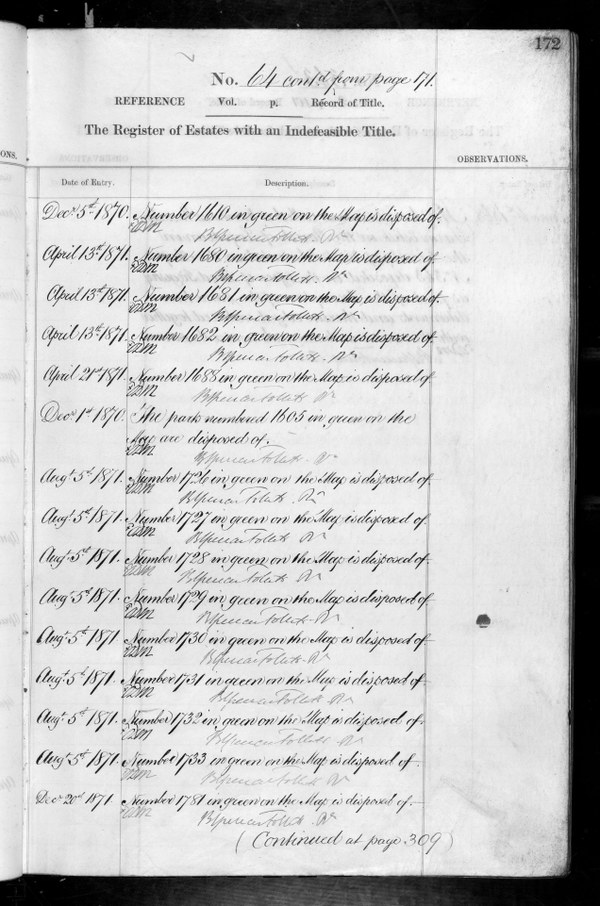 172
No. 64 cont'd from page 171.
REFERENCE Vol. p. Record of Title.
The Register of Estates with an Indefeasible Title.
ONS.
OBSERVATIONS.
Date of Entry. Description.
Decr. 5th 1870. Number 1610 in green on the Map is disposed of.
April 13th 1871. Number 1680 in green on the Map is disposed of
April 13th 1871. Number 1681 in green on the Map is disposed of
April 13th 1871. Number 1682 in green on the Map is disposed of
April 21st 1871. Number 1688 in green on the Map is disposed of
Decr. 1st 1870. The park numbered 1605 in green on the
Map are disposed of.
Augt. 5th 1871. Number 1726 in green on the Map is disposed of
Augt. 5th 1871. Number 1727 in green on the Map is disposed of
Augt. 5th 1871. Number 1728 in green on the Map is disposed of
Augt. 5th 1871. Number 1729 in green on the Map is disposed of
Augt. 5th 1871. Number 1730 in green on the Map is disposed of
Augt. 5th 1871. Number 1731 in green on the Map is disposed of
Augt. 5th 1871. Number 1732 in green on the Map is disposed of.
Augt. 5th 1871. Number 1733 in green on the Map is disposed of.
Decr. 20th 1871. Number 1781 in green on the Map is disposed of.
(Continued at page 309)